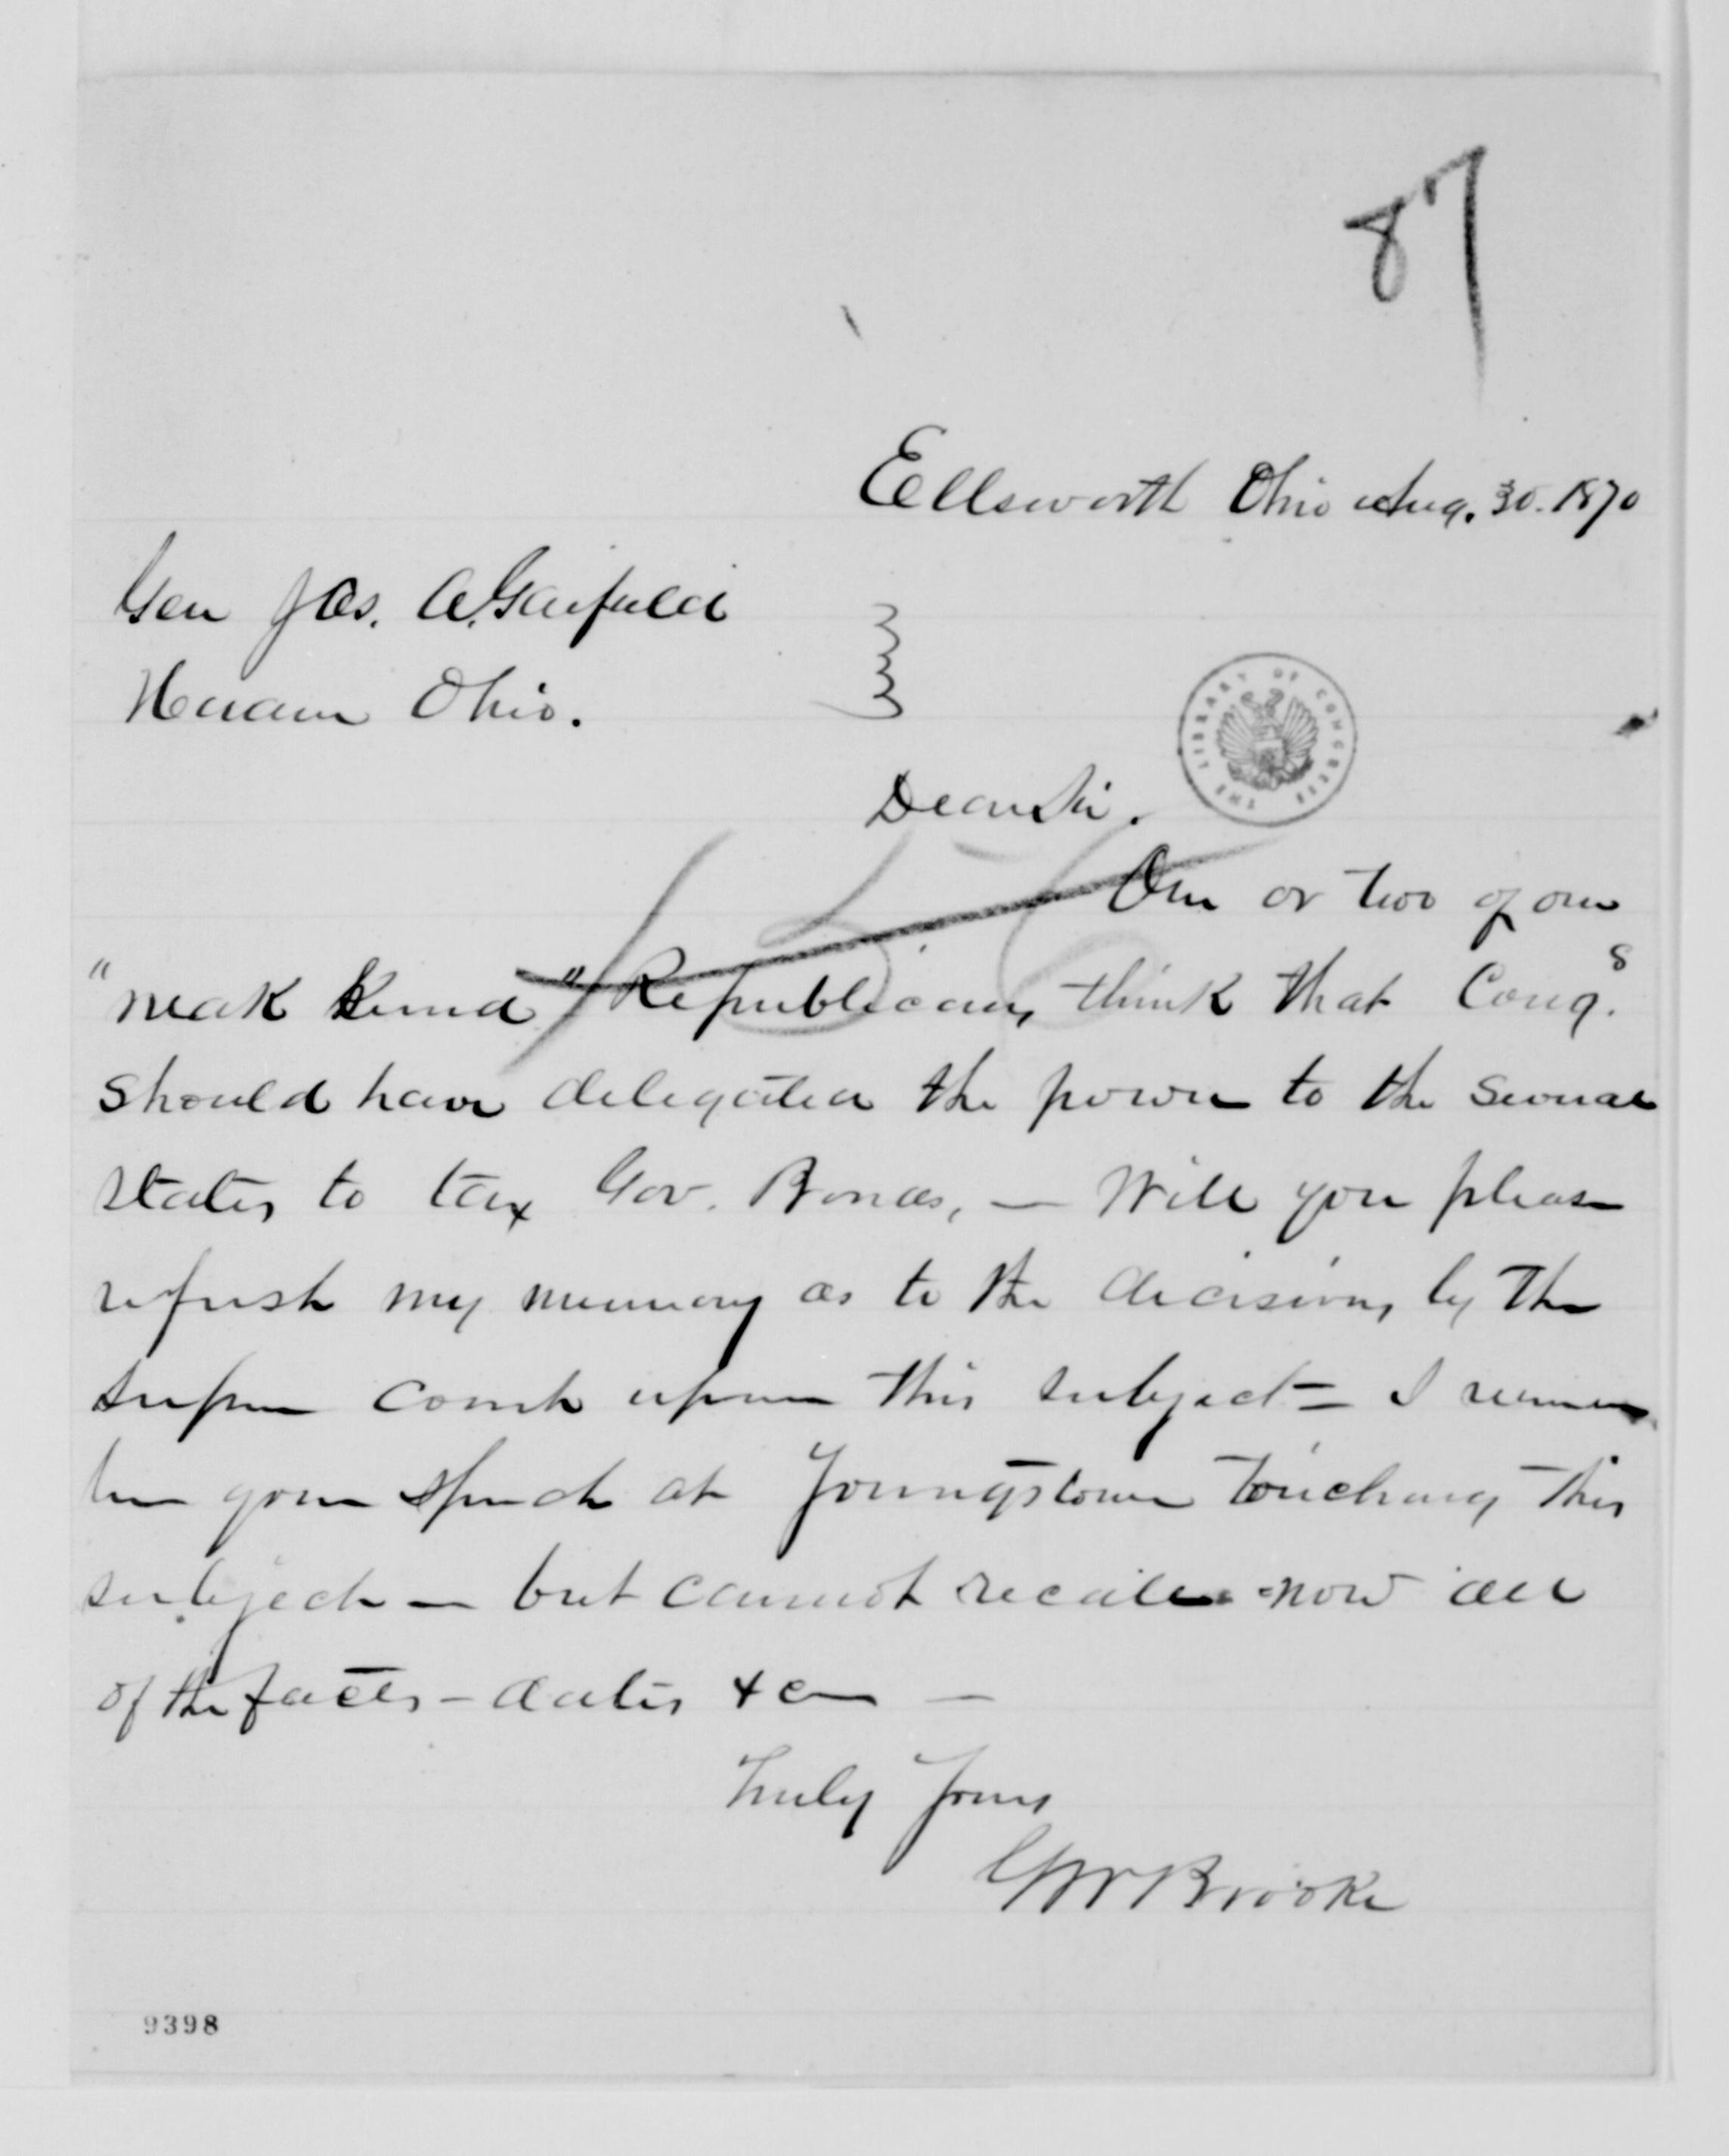 87
Ellsworth Ohio Aug. 30. 1870
Gen Jas. A. Garfield
Hiram Ohio.
THE LIBRARY OF CONGRESS
Dear Sir.
156
One or two of our
"weak kneed" Republicans think that Cong.s
should have delegated the power to the several
states to tax Gov. Bonds, — Will you please
refresh my memory as to the decisions by the
Supreme Court upon this subject — I remem
ber your speech at Youngstown touching this
subject — but cannot recall now all
of the facts — dates &c —
Truly Yours
GW Brooke
9398